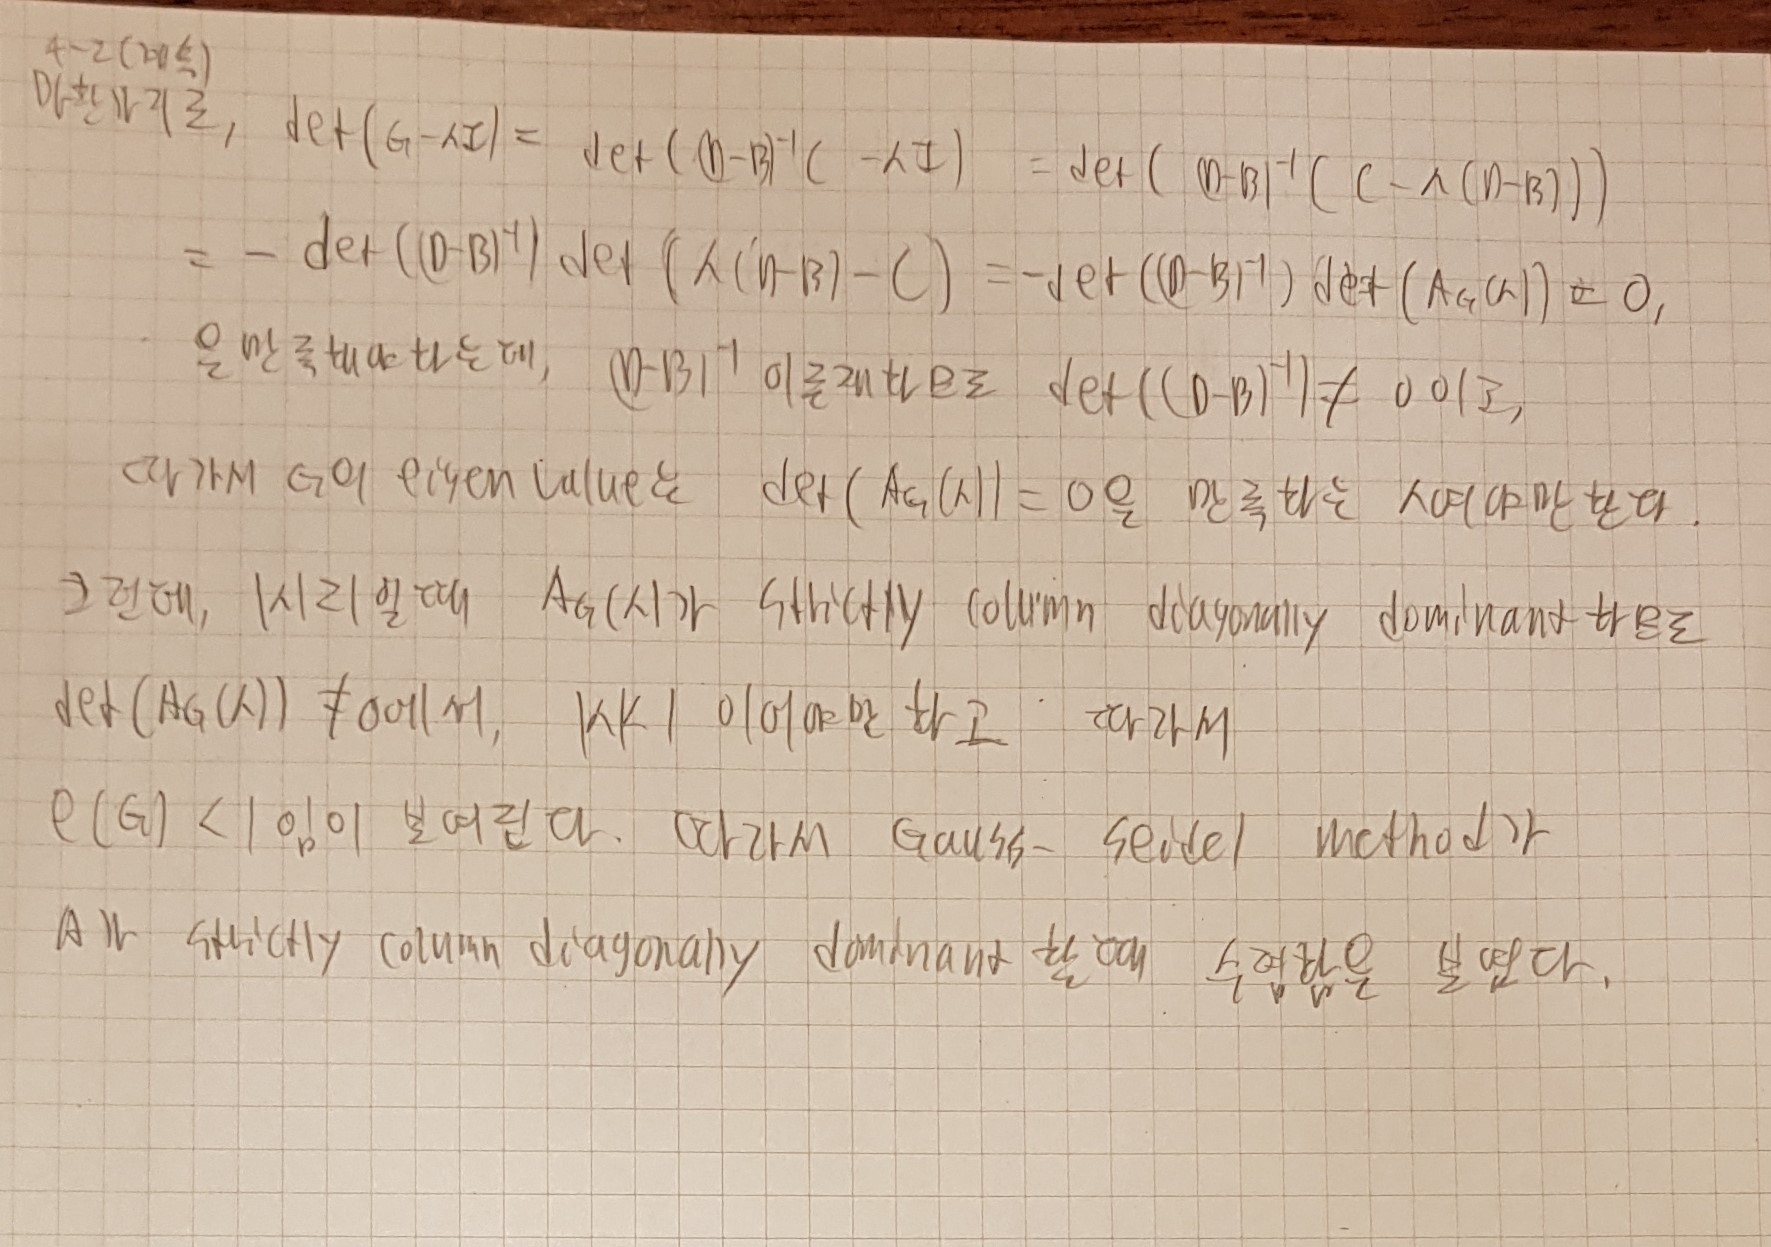 4-2(계속)
마찬가지로, det(G-λI) = det((D-B)⁻¹C-λI) = det((D-B)⁻¹(C-λ(D-B)))
= - det((D-B)⁻¹) det(λ(D-B)-C) = -det((D-B)⁻¹) det(A_G(λ)) = 0,
을 만족해야 하는데, (D-B)⁻¹이 존재하므로 det((D-B)⁻¹) ≠ 0이고,
따라서 G의 eigenvalue는 det(A_G(λ)) = 0을 만족하는 λ여야만 한다.
그런데, |λ|≥1일때 A_G(λ)가 strictly column diagonally dominant 하므로
det(A_G(λ)) ≠0에서, |λ|<1 이어야만 하고 따라서
ρ(G) < 1임이 보여진다. 따라서 Gauss- seidel method가
A가 strictly column diagonally dominant 할때 수렴함을 보였다.